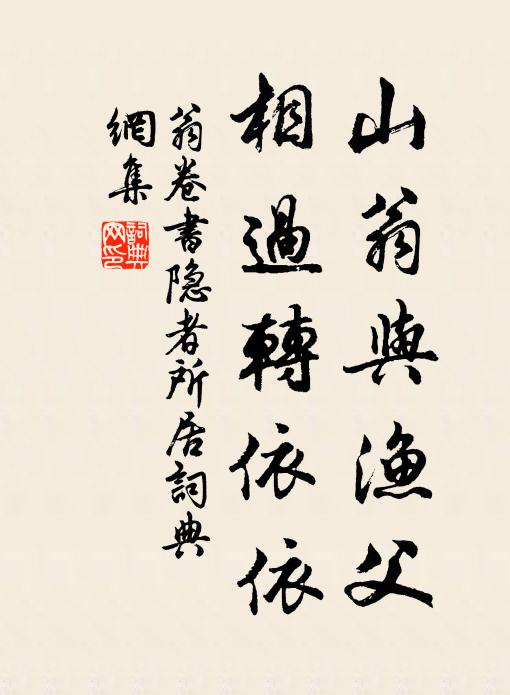 山翁與漁父
相過轉依依
翁卷書隐者所居詞典
網集
詞典
网印